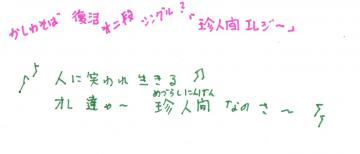 かしわそば 復活 オニ段 シングル?「珍人間エレジー」
人に笑われ 生きる
オレ達ゃ〜 珍人間 なのさ〜
めづらしにんげん